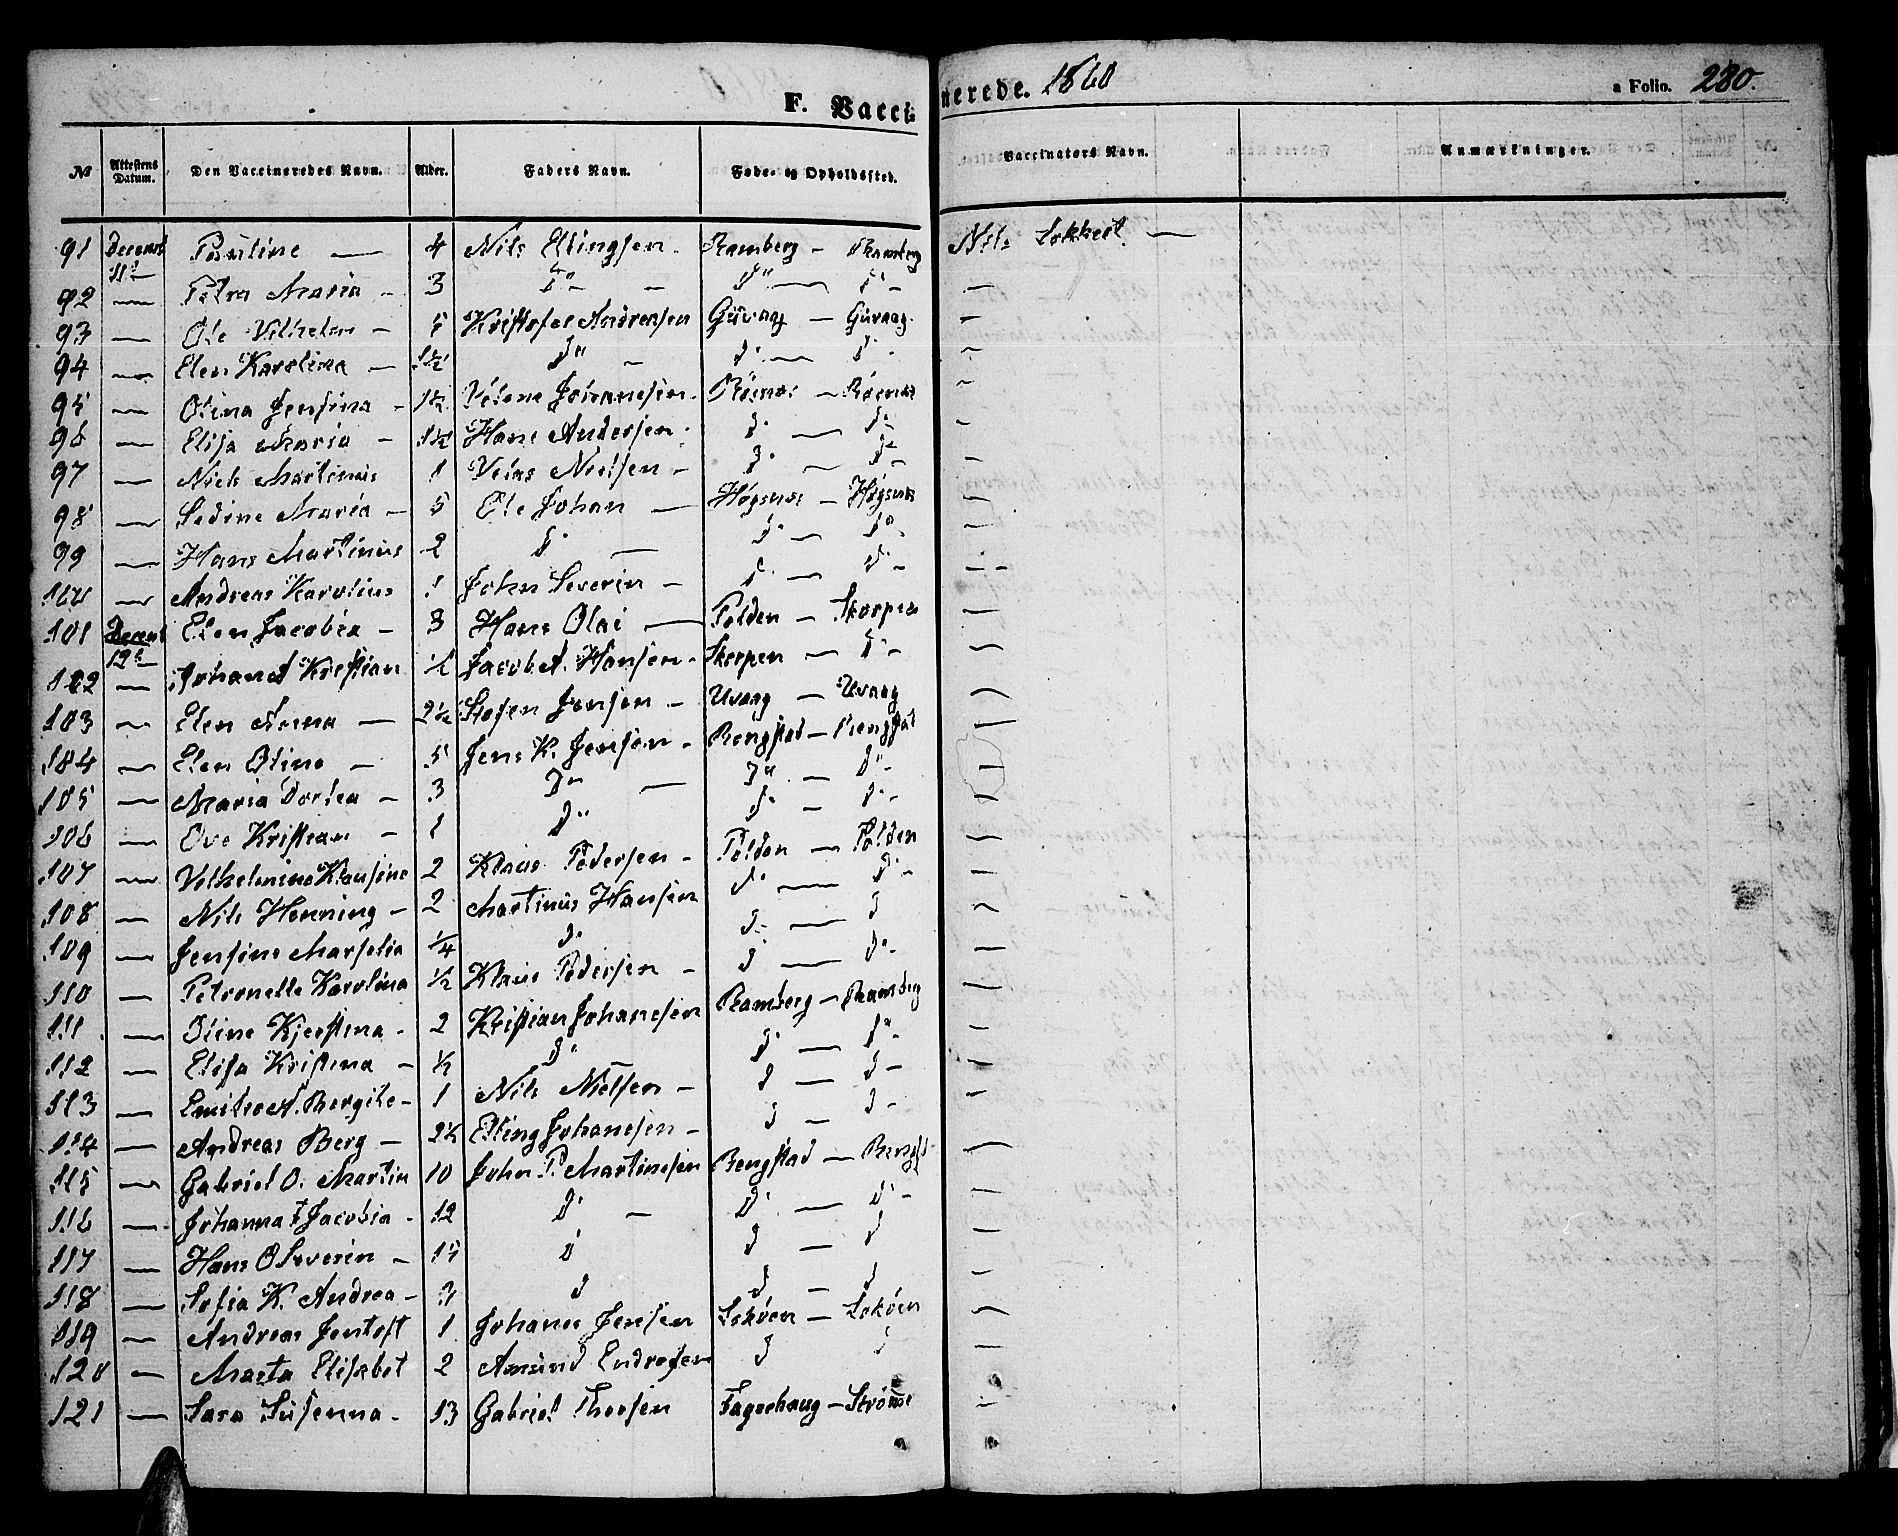 F. Vaccinerede. 1860 a Folio. 280.
№ Attestens Datum. Den Vaccineredes Navn. Alder. Faders Navn. Føde- og Opholdssted. Vaccinators Navn. Anmærkninger.
91 Decemb 11te Pauline — 4 Nils Ellingsen - Ramberg — Ramberg Nils Lokkert —
92 — Petra Maria - 3 Do - - Do — Do - —
93 — Ole Vilhelm - 5 Kristofer Andreasen Guvaag — Guvaag —
94 — Elen Karolina — 1½ Do - Do — Do -
95 — Olina Jensina - 1½ Johanesen - — -
96 — Elisa Maria - 1½ Hans Andersen - Do — Do -
97 — Niels Martinus 1 Nielsen - Do — Do - —
98 — Sedine Maria - 5 Ole Johan — Høgsnes — Høgsnes —
99 — Hans Martinus 2 Do — Do — Do - —
100 — Andreas Karolius 1 John Severin - Do — Do - — -
101 Decemb 12te Elen Jacobea - 3 Hans Olai — Folden — Skorpen —
102 — Johan A Kristian ½ Jacob A. Hansen - Skorpen — Do - —
103 — Elen Anna — 2½ Stefen Jensen - Uvaag — Uvaag —
104 — Elen Oline - 5 Jens K. Jensen - Rengstad — Rengstad —
105 — Maria Dortea - 3 Do — Do — Do —
106 — Ove Kristian - 1 Do Do — Do - —
107 — Vilhelmine Klausine 2 Klaus Pedersen - Folden — Folden —
108 — Nils Henning - 2 Martinus Hansen Do — Do - —
109 — Jensine Marselia ¼ Do Do — D —
110 — Petronelle Karolina ½ Klaus Pedersen - D — Do - —
111 — Oline Kjerstina - 2 Kristian Johanesen Ramberg — Ramberg —
112 — Elisa Kristina - ½ Do Do — Do - —
113 — A. Bergite - 1 Nils Nielsen - D — D - —
114 — Andreas Berg - 2½ Elling Johanesen - D - D - —
115 — Gabriel O. Martin 10 John P. Martinesen Rengstad — Rengst —
116 — Johanna Jacobia - 12 Do - Do — Do - —
117 — Hans O Severin - 15 D D — D —
118 — Sofia K. Andrea - 3 D D - D —
119 — Andreas Jentoft 1 Johanes Jensen Lokøen — Lokøen —
120 — Marta Elisabet 2 Amund Endresen D D —
121 — Sara Susenna - 13 Gabriel Thorsen Fagrehaug — Strømme —